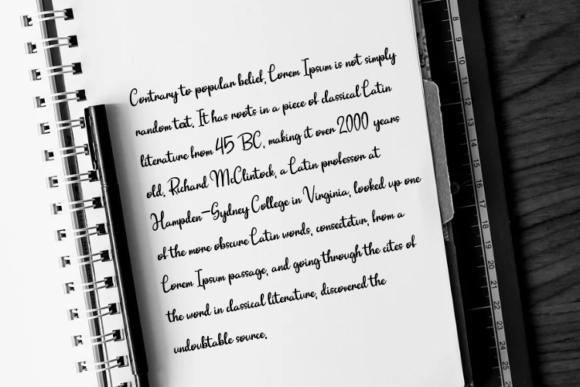 Contrary to popular belief, Lorem Ipsum is not simply
random text. It has roots in a piece of classical Latin
literature from 45 BC, making it over 2000 years
old. Richard McClintock, a Latin professor at
Hampden–Sydney College in Virginia, looked up one
of the more obscure Latin words, consectetur, from a
Lorem Ipsum passage, and going through the cites of
the word in classical literature, discovered the
undoubtable source.